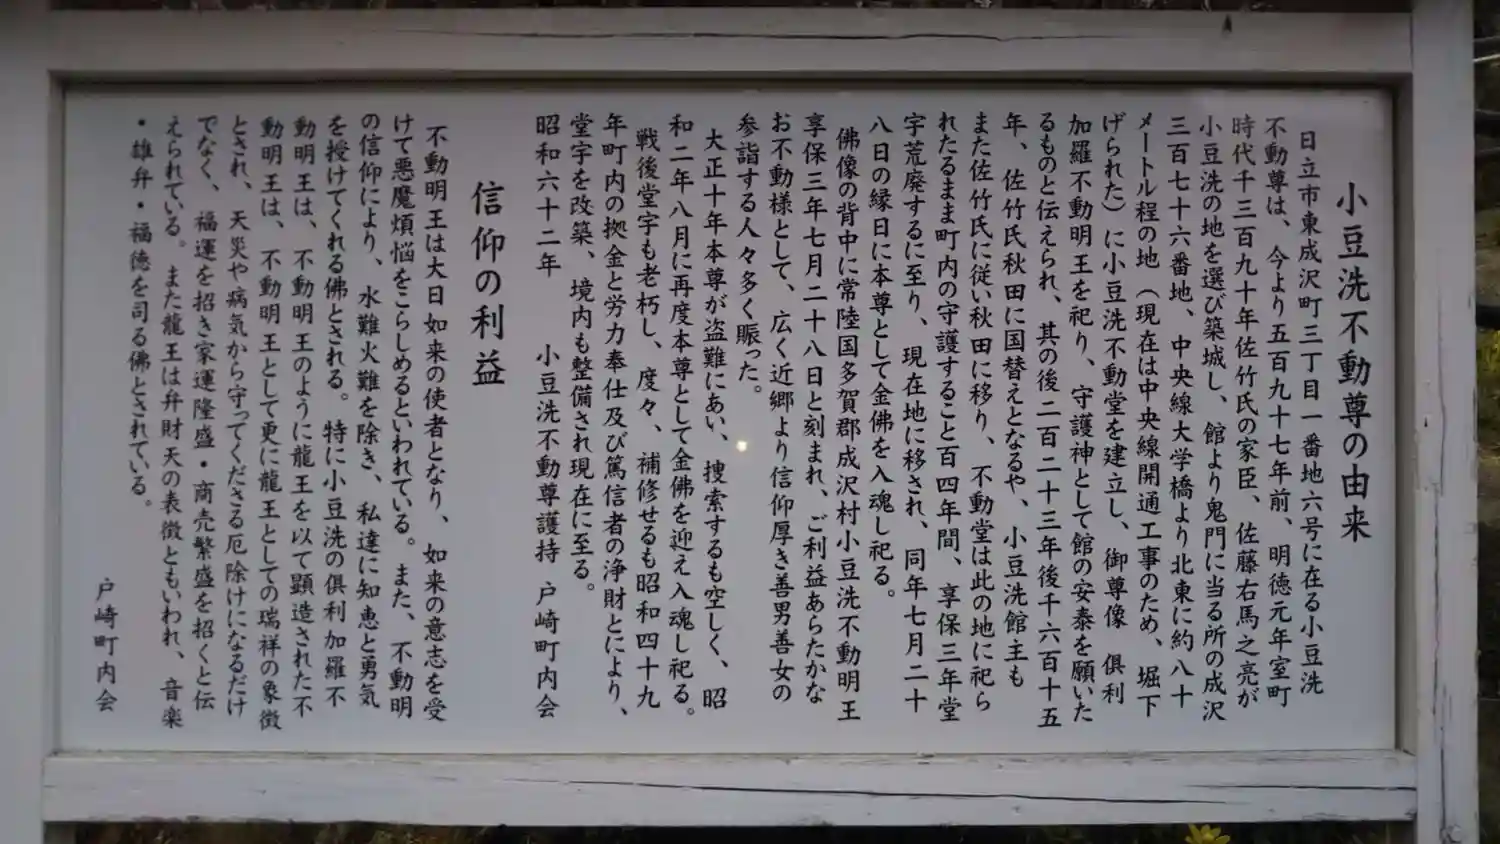 小豆洗不動尊の由来
日立市東成沢町三丁目一番地六号に在る小豆洗
不動尊は、今より五百九十七年前、明徳元年室町
時代千三百九十年佐竹氏の家臣、佐藤右馬之亮が
小豆洗の地を選び築城し、館より鬼門に当る所の成沢
三百七十六番地、中央線大学橋より北東に約八十
メートル程の地（現在は中央線開通工事のため、堀下
げられた）に小豆洗不動堂を建立し、御尊像　俱利
加羅不動明王を祀り、守護神として館の安泰を願いた
るものと伝えられ、其の後二百二十三年後千六百十五
年、佐竹氏秋田に国替えとなるや、小豆洗館主も
また佐竹氏に従い秋田に移り、不動堂は此の地に祀ら
れたるまま町内の守護すること百四年間、享保三年堂
宇荒廃するに至り、現在地に移され、同年七月二十
八日の縁日に本尊として金佛を入魂し祀る。
佛像の背中に常陸国多賀郡成沢村小豆洗不動明王
享保三年七月二十八日と刻まれ、ご利益あらたかな
お不動様として、広く近郷より信仰厚き善男善女の
参詣する人々多く賑った。
大正十年本尊が盗難にあい、捜索するも空しく、昭
和二年八月に再度本尊として金佛を迎え入魂し祀る。
戦後堂宇も老朽し、度々、補修せるも昭和四十九
年町内の拠金と労力奉仕及び篤信者の浄財とにより、
堂宇を改築、境内も整備され現在に至る。
昭和六十二年　　小豆洗不動尊護持　戸崎町内会
信仰の利益
不動明王は大日如来の使者となり、如来の意志を受
けて悪魔煩悩をこらしめるといわれている。また、不動明
の信仰により、水難火難を除き、私達に知恵と勇気
を授けてくれる佛とされる。特に小豆洗の俱利加羅不
動明王は、不動明王のように龍王を以て顕造された不
動明王は、不動明王として更に龍王としての瑞祥の象徴
とされ、天災や病気から守ってくださる厄除けになるだけ
でなく、福運を招き家運隆盛・商売繁盛を招くと伝
えられている。また龍王は弁財天の表徴ともいわれ、音楽
・雄弁・福徳を司る佛とされている。
戸崎町内会